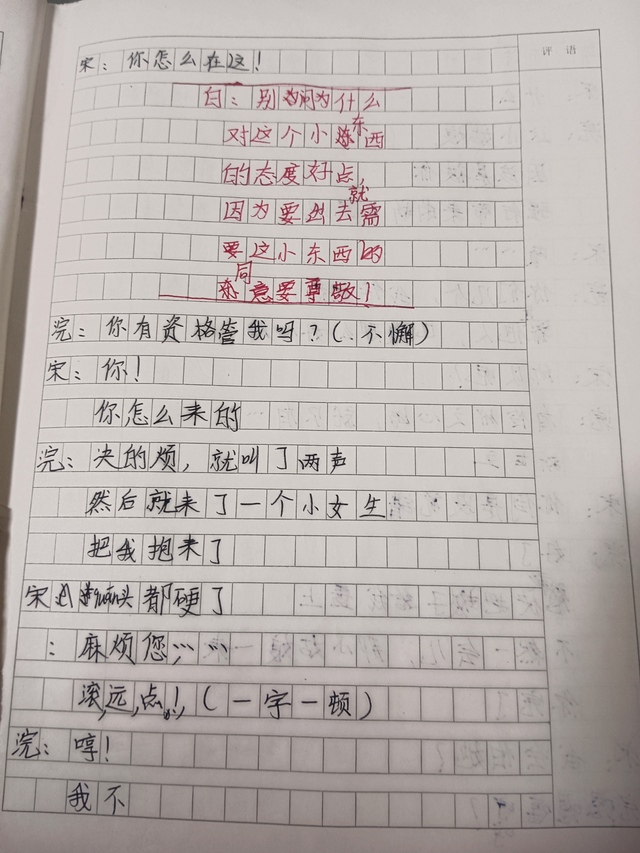 评语
宋：你怎么在这！
白：别问为什么
对这个小东西
的态度好点，
因为要出去就需
要这小东西的
同意要尊敬！
浣：你有资格管我吗？（不懈）
宋：你！
你怎么来的
浣：决的烦，就叫了两声
然后就来了一个小女生
把我抱来了
宋 头都硬了
：麻烦您……
滚，远，点！，（一字一顿）
浣：哼！
我不